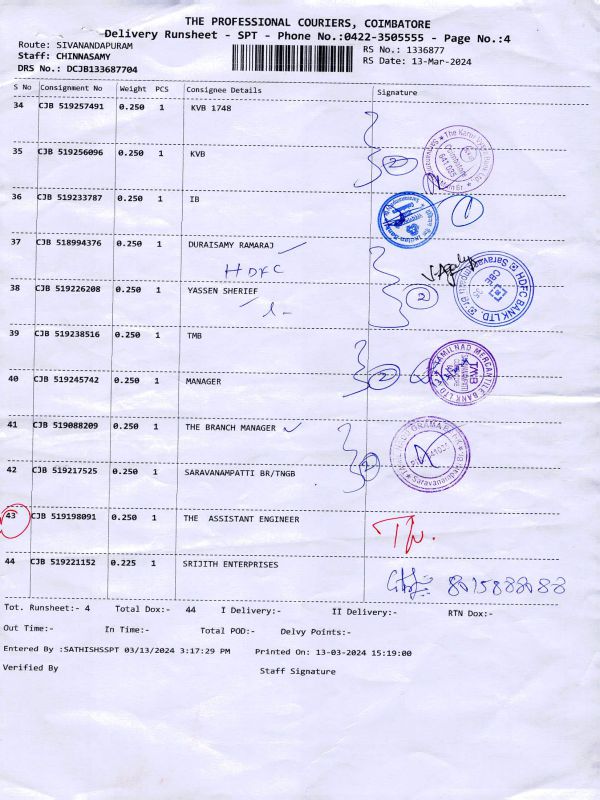 THE PROFESSIONAL COURIERS, COIMBATORE
Delivery Runsheet - SPT - Phone No.:0422-3505555 - Page No.:4
Route: SIVANANDAPURAM
RS No.: 1336877
Staff: CHINNASAMY
RS Date: 13-Mar-2024
DRS No.: DCJB133687704
S No Consignment No Weight PCS Consignee Details Signature
34 CJB 519257491 0.250 1 KVB 1748
35 CJB 519256096 0.250 1 KVB 2
36 CJB 519233787 0.250 1 IB 1
37 CJB 518994376 0.250 1 DURAISAMY RAMARAJ
HDFC
38 CJB 519226208 0.250 1 YASSEN SHERIEF 2 HDFC BANK LTD
39 CJB 519238516 0.250 1 TMB
TAMILNAD MERCANTILE BANK LTD
TMB
40 CJB 519245742 0.250 1 MANAGER 2
41 CJB 519088209 0.250 1 THE BRANCH MANAGER
42 CJB 519217525 0.250 1 SARAVANAMPATTI BR/TNGB 2
43 CJB 519198091 0.250 1 THE ASSISTANT ENGINEER
44 CJB 519221152 0.225 1 SRIJITH ENTERPRISES
8015888088
Tot. Runsheet:- 4 Total Dox:- 44 I Delivery:- II Delivery:- RTN Dox:-
Out Time:- In Time:- Total POD:- Delvy Points:-
Entered By :SATHISHSSPT 03/13/2024 3:17:29 PM Printed On: 13-03-2024 15:19:00
Verified By Staff Signature